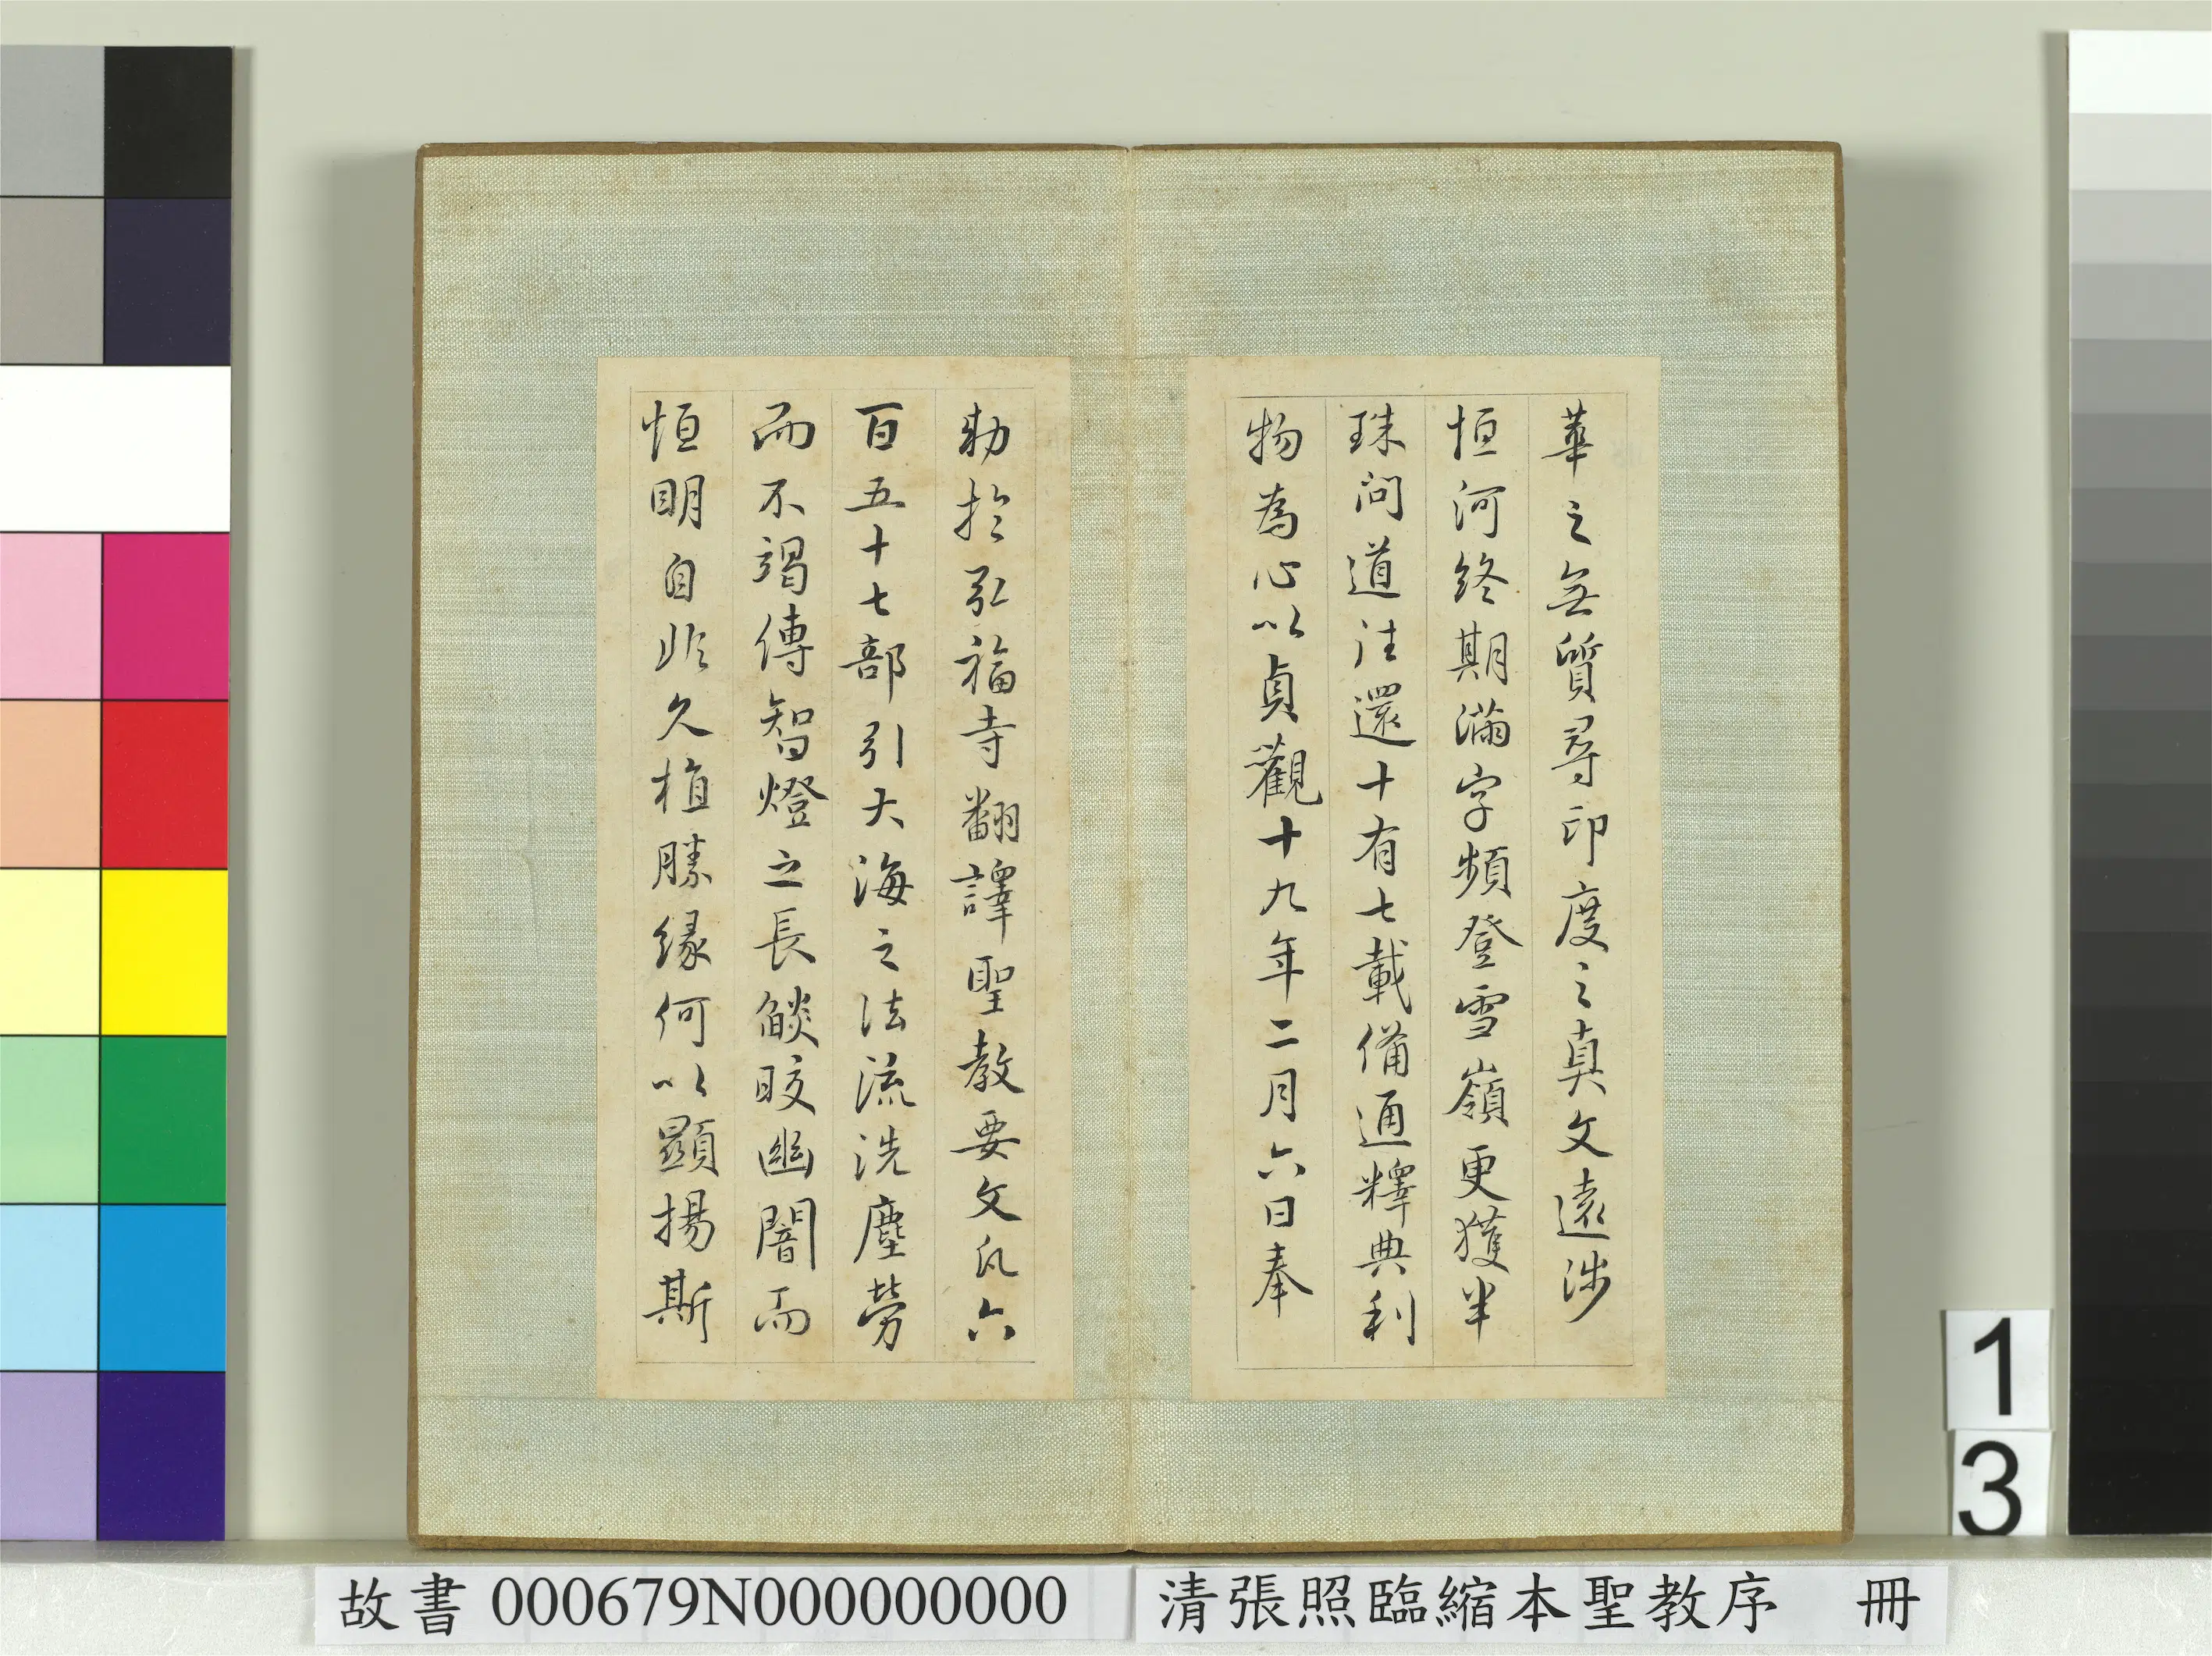 華之無質尋印度之真文遠涉
恒河終期滿字頻登雪嶺更獲半
珠問道法還十有七載備通釋典利
物為心以貞觀十九年二月六日奉
勑於弘福寺翻譯聖教要文凡六
百五十七部引大海之法流洗塵勞
而不竭傳智燈之長燄皎幽闇而
恒明自非久植勝緣何以顯揚斯
1
3
故書 000679N000000000
清張照臨縮本聖教序 冊